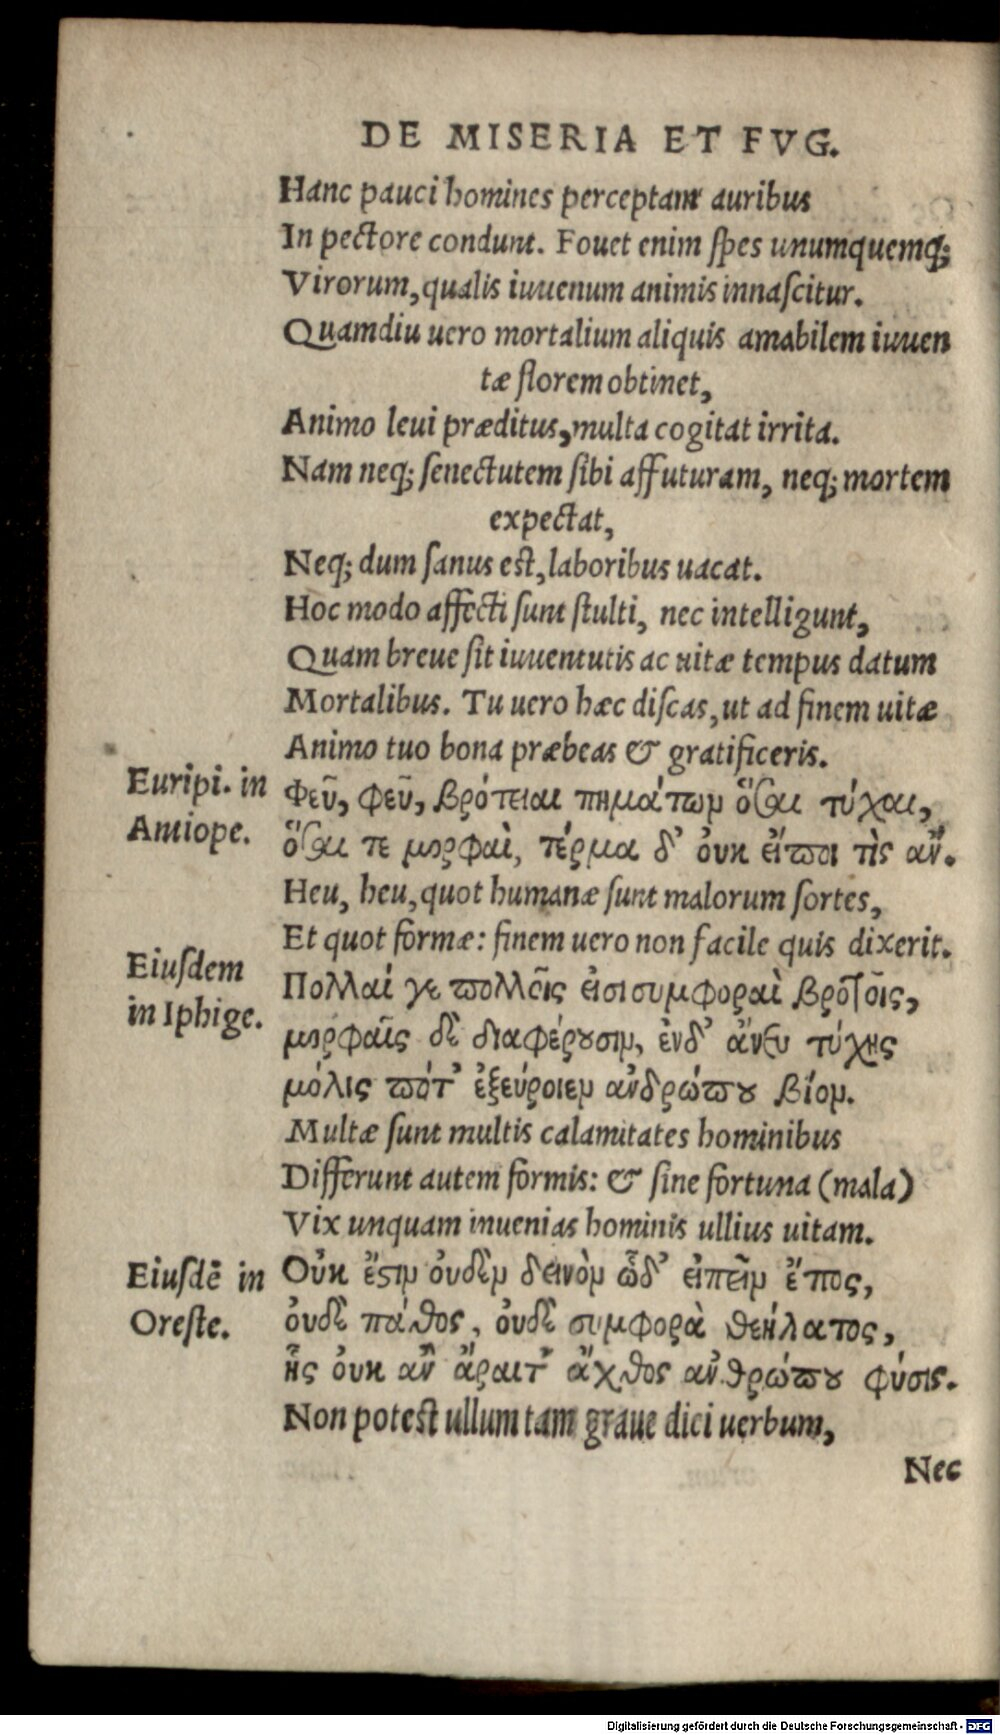 DE MISERIA ET FVG.
Hanc pauci homines perceptam auribus
In pectore condunt. Fouet enim ſpes unumquemq;
Virorum, qualis iuuenum animis innaſcitur.
Quamdiu uero mortalium aliquis amabilem iuuen
tæ florem obtinet,
Animo leui præditus, multa cogitat irrita.
Nam neq; ſenectutem ſibi affuturam, neq; mortem
expectat,
Neq; dum ſanus est, laboribus uacat.
Hoc modo affecti ſunt ſtulti, nec intelligunt,
Quam breue ſit iuuentutis ac uitæ tempus datum
Mortalibus. Tu uero hæc diſcas, ut ad finem uitæ
Animo tuo bona præbeas & gratificeris.
Euripi. in
Antiope.
Φεῦ, φεῦ, βρότειαι πημάτων ὅσαι τύχαι,
ὅσαι τε μορφαὶ, τέρμα δ' ὀυκ ἐίποι τὶς ἄν.
Heu, heu, quot humanæ ſunt malorum ſortes,
Et quot formæ: finem uero non facile quis dixerit.
Eiuſdem
in Iphige.
Πολλαί γε πολλοῖς ἐισι συμφοραὶ βροτοῖς,
μορφαῖς δὲ διαφέρουσιν, ἐνδ' ἄνευ τύχης
μόλις πότ' ἐξεύροιεν ἀνδρώπου βίον.
Multæ ſunt multis calamitates hominibus
Differunt autem formis: & ſine fortuna (mala)
Vix unquam inuenias hominis ullius uitam.
Eiuſdē in
Oreſte.
Οὐκ ἔστιν ὀυδὲν δεινὸν ὧδ' ἐιπεῖν ἔπος,
ὀυδὲ πάθος, ὀυδὲ συμφορὰ θεήλατος,
ἧς ὀυκ ἂν ἄραιτ' ἄχθος ἀνθρώπου φύσις.
Non potest ullum tam graue dici uerbum,
Nec
Digitalisierung gefördert durch die Deutsche Forschungsgemeinschaft - DFG